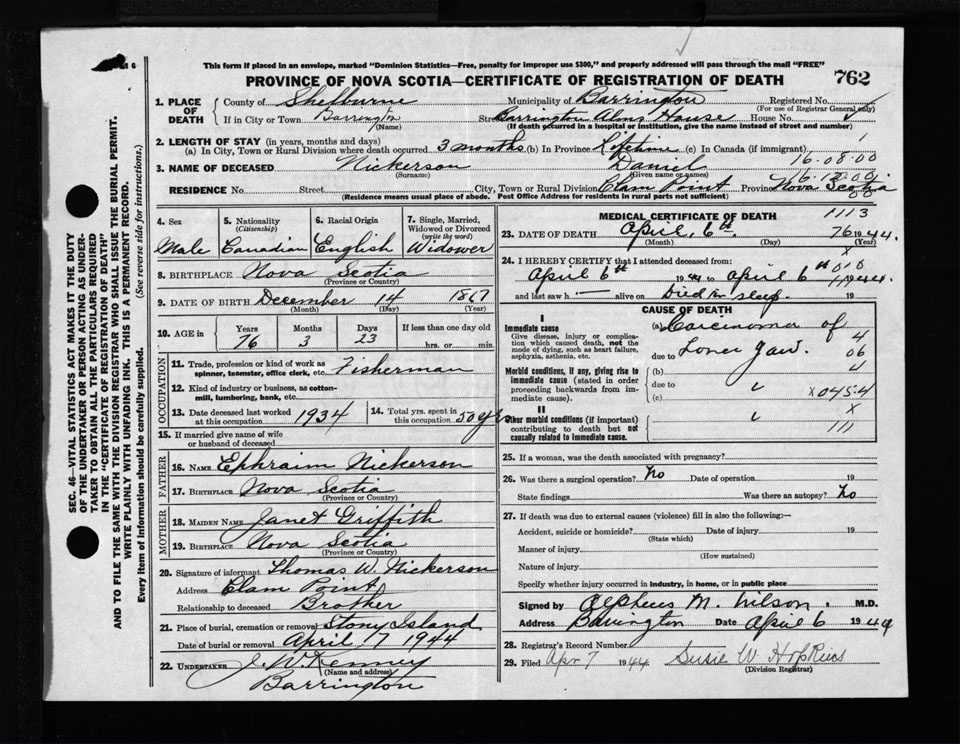 M 6
This form if placed in an envelope, marked "Dominion Statistics—Free, penalty for improper use $300," and properly addressed will pass through the mail "FREE"
PROVINCE OF NOVA SCOTIA—CERTIFICATE OF REGISTRATION OF DEATH 762
1. PLACE OF DEATH County of Shelburne Municipality of Barrington Registered No.
(For use of Registrar General only)
If in City or Town Barrington Street Barrington Alms House House No.
(Name) (If death occurred in a hospital or institution, give the name instead of street and number)
2. LENGTH OF STAY (in years, months and days)
(a) In City, Town or Rural Division where death occurred 3 months (b) In Province Lifetime (c) In Canada (if immigrant)
16.08.00
3. NAME OF DECEASED Nickerson Daniel
(Surname) (Given name or names)
RESIDENCE No. Street City, Town or Rural Division Clam Point Province Nova Scotia
(Residence means usual place of abode. Post Office Address for residents in rural parts not sufficient)
SEC. 46—VITAL STATISTICS ACT MAKES IT THE DUTY
OF THE UNDERTAKER OR PERSON ACTING AS UNDER-
TAKER TO OBTAIN ALL THE PARTICULARS REQUIRED
IN THE "CERTIFICATE OF REGISTRATION OF DEATH"
AND TO FILE THE SAME WITH THE DIVISION REGISTRAR WHO SHALL ISSUE THE BURIAL PERMIT.
WRITE PLAINLY WITH UNFADING INK. THIS IS A PERMANENT RECORD.
Every item of information should be carefully supplied. (See reverse side for instructions.)
4. Sex 5. Nationality 6. Racial Origin 7. Single, Married,
(Citizenship) Widowed or Divorced
(write the word)
Male Canadian English Widower
8. BIRTHPLACE Nova Scotia
(Province or Country)
9. DATE OF BIRTH December 14 1867
(Month) (Day) (Year)
10. AGE in Years Months Days If less than one day
76 3 23 hrs. or min.
OCCUPATION
11. Trade, profession or kind of work as Fisherman
spinner, teamster, office clerk, etc.
12. Kind of industry or business, as cotton-
mill, lumbering, bank, etc.
13. Date deceased last worked at this occupation 1934 14. Total yrs. spent in this occupation 50 yrs
15. If married give name of wife
or husband of deceased
FATHER
16. NAME Ephraim Nickerson
17. BIRTHPLACE Nova Scotia
(Province or Country)
MOTHER
18. MAIDEN NAME Janet Griffith
19. BIRTHPLACE Nova Scotia
(Province or Country)
20. Signature of informant Thomas W. Nickerson
Address Clam Point
Relationship to deceased Brother
21. Place of burial, cremation or removal Stony Island
Date of burial or removal April 7 1944
22. UNDERTAKER J. W. Kenney
(Name and address)
Barrington
MEDICAL CERTIFICATE OF DEATH 1113
23. DATE OF DEATH April, 6th. 76 1944.
(Month) (Day) (Year)
24. I HEREBY CERTIFY that I attended deceased from:
April 6th 1944 to April 6th 1944.
and last saw h alive on Died in sleep. 19
CAUSE OF DEATH
I
Immediate cause (a) Carcinoma of
Give disease, injury or complica-
tion which caused death, not the
mode of dying, such as heart failure,
asphyxia, asthenia, etc.
due to Lower jaw.
4
06
Morbid conditions, if any, giving rise to
immediate cause (stated in order
proceeding backwards from im-
mediate cause).
(b)
due to
(c) x 045.4
II
Other morbid conditions (if important)
contributing to death but not
causally related to immediate cause.
x
111
25. If a woman, was the death associated with pregnancy?
26. Was there a surgical operation? No Date of operation 19
State findings Was there an autopsy? No
27. If death was due to external causes (violence) fill in also the following:—
Accident, suicide or homicide? Date of injury 19
(State which)
Manner of injury
(How sustained)
Nature of injury
Specify whether injury occurred in industry, in home, or in public place
Signed by Alpheus M. Wilson, M.D.
Address Barrington Date April 6 1944
28. Registrar's Record Number
29. Filed Apr 7 1944 Susie W. Hopkins
(Division Registrar)